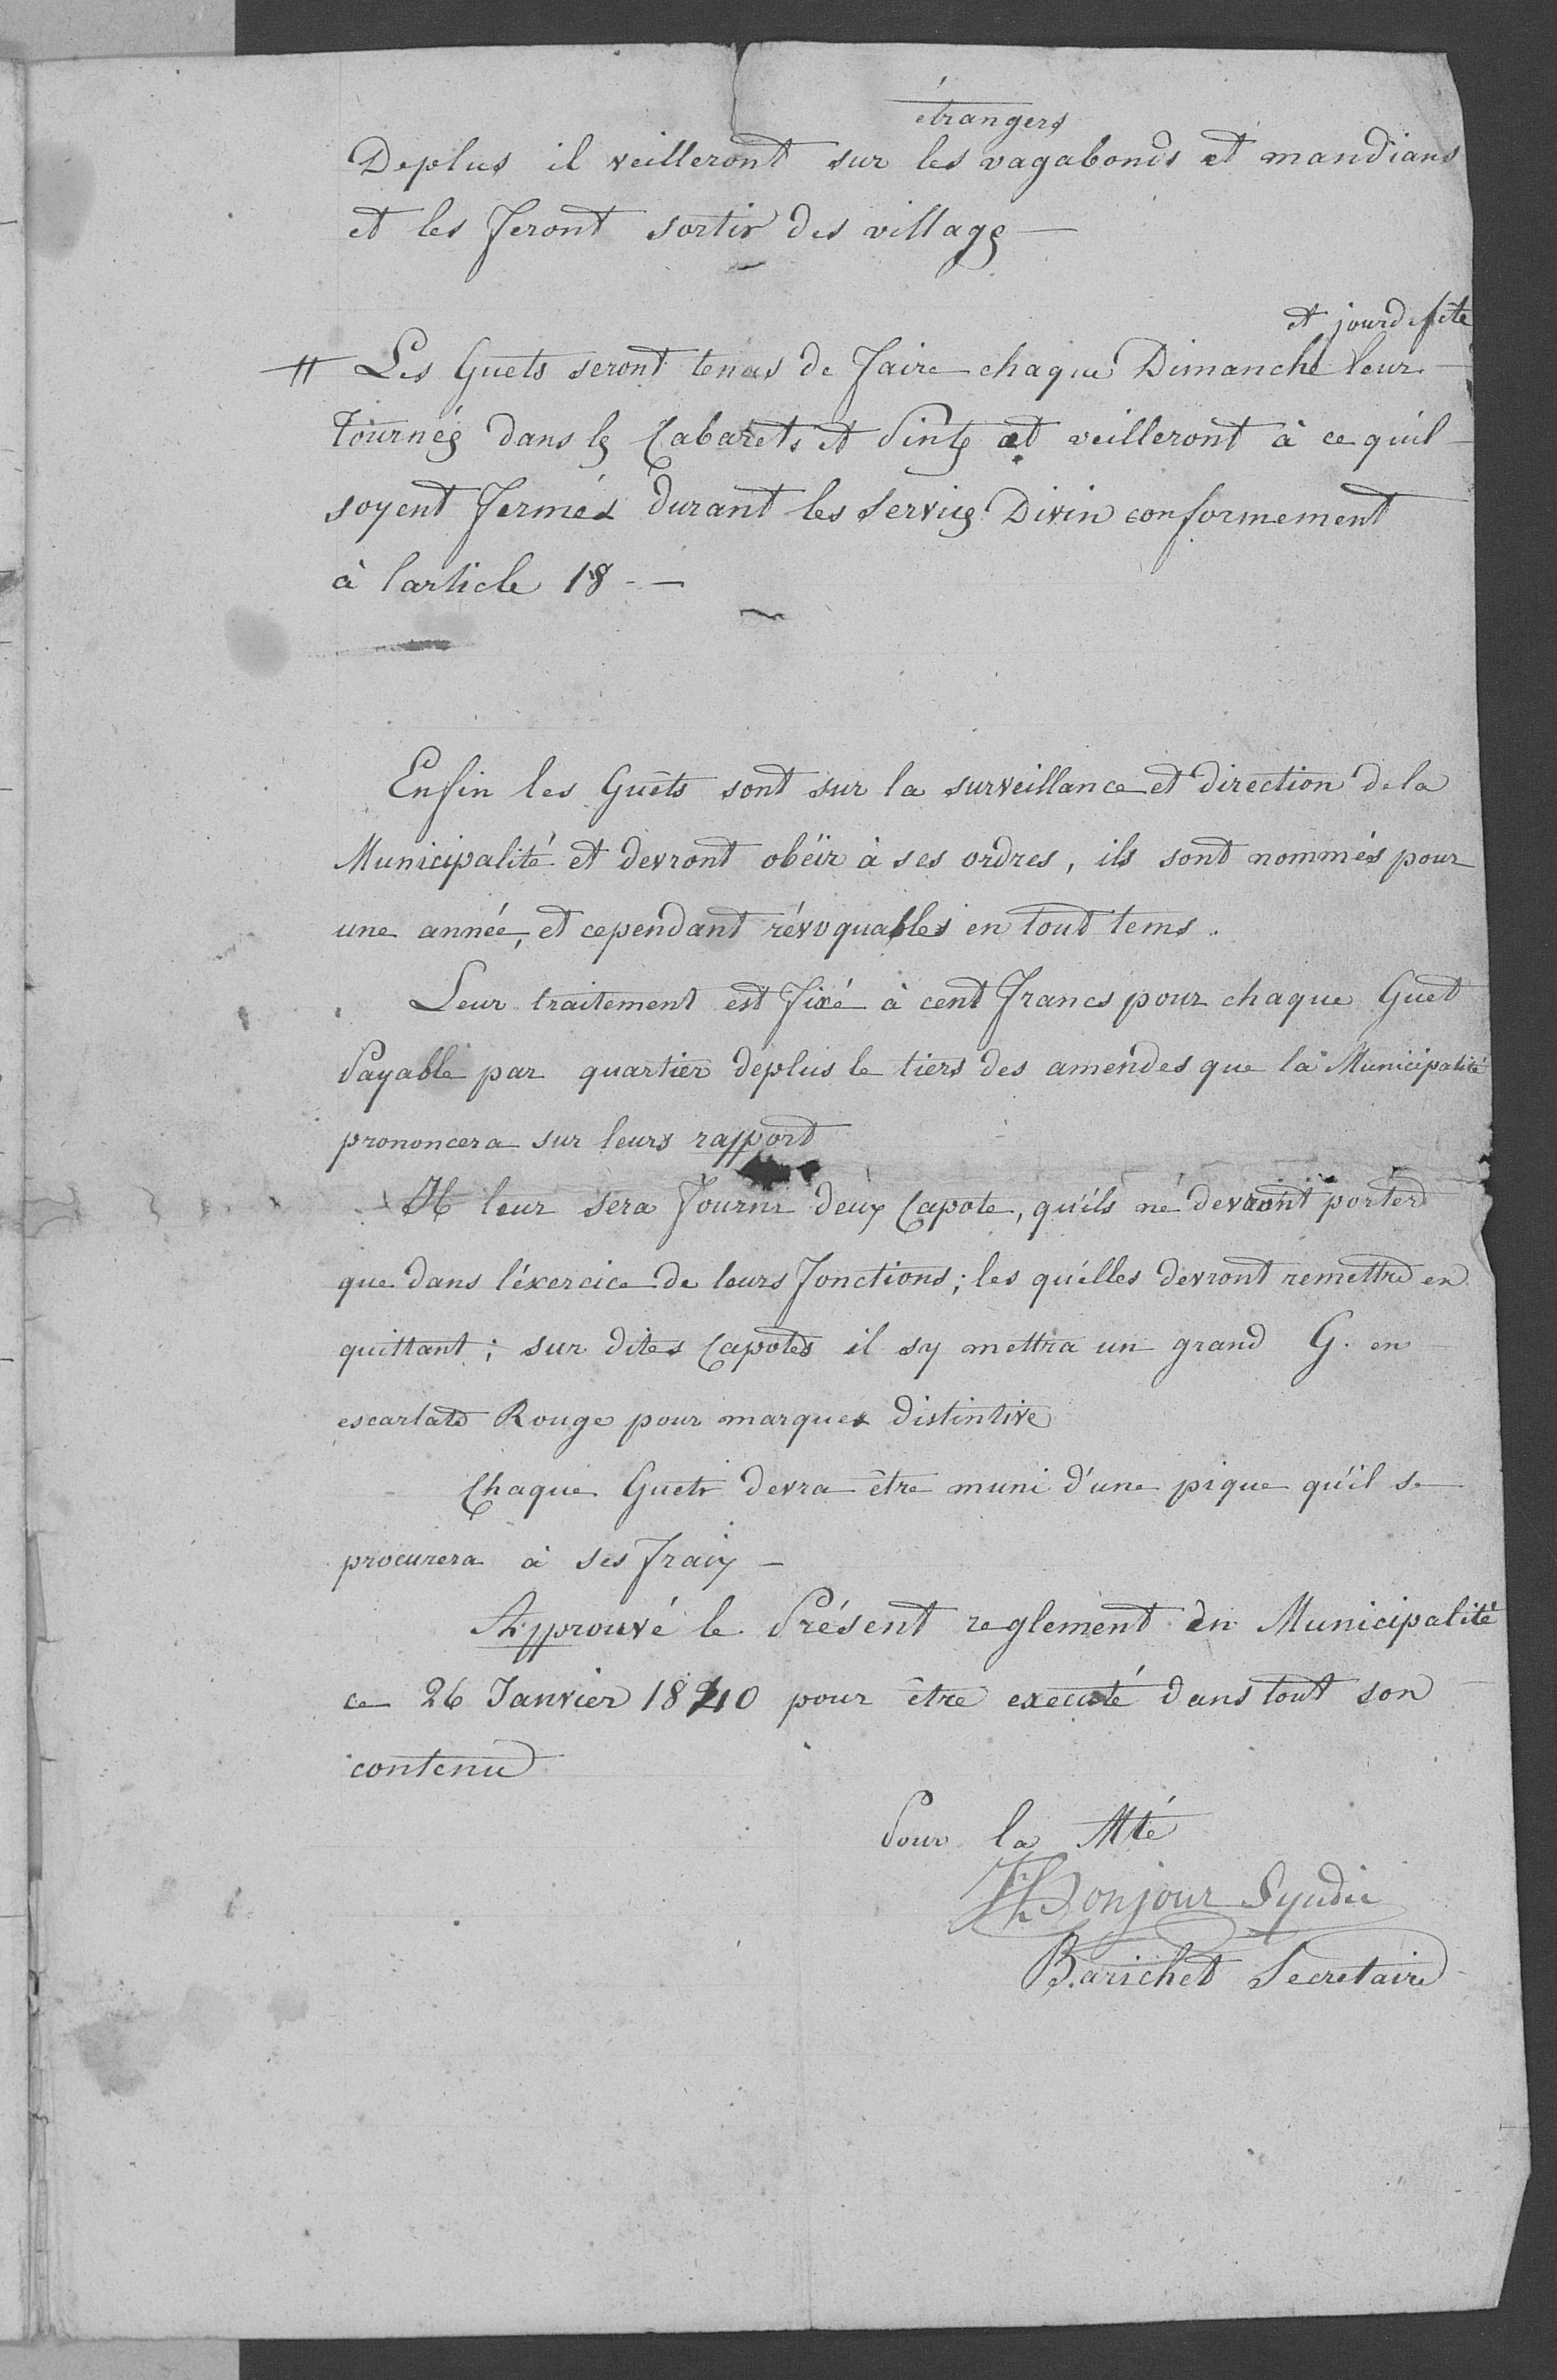 étrangers
Deplus il veilleront sur les vagabonds et mandians
et les feront sortir des villages —
et jour de fete
# Les Guets seront tenus de faire chaque Dimanche leur
tournées dans les Cabarets et Pintes et veilleront à ce qu'il
soyent fermés durant les services Divin conformement
à larticle 18 - —
Enfin les Guets sont sur la surveillance et direction dela
Municipalité et devront obéir à ses ordres, ils sont nommés pour
une année, et cependant révoquables en tout tems.
Leur traitement est fixé à cent francs pour chaque Guet
Payable par quartier deplus le tiers des amendes que la Municipalité
prononcera sur leurs rapport
Il leur sera fourni deux Capote, qu'ils ne devront porter
que dans l'éxercice de leurs fonctions; les qu'elles devront remettre en
quittant; sur dites Capotes il sy mettra un grand G. en
escarlate Rouge pour marques distintive
Chaque Guet devra être muni d'une pique qu'il se
procurera à ses fraix —
Approuvé le Présent reglement en Municipalité
ce 26 Janvier 1840 pour être executé dans tout son
contenu
Pour la Mté
Bonjour Syndic
Barichet Secretaire